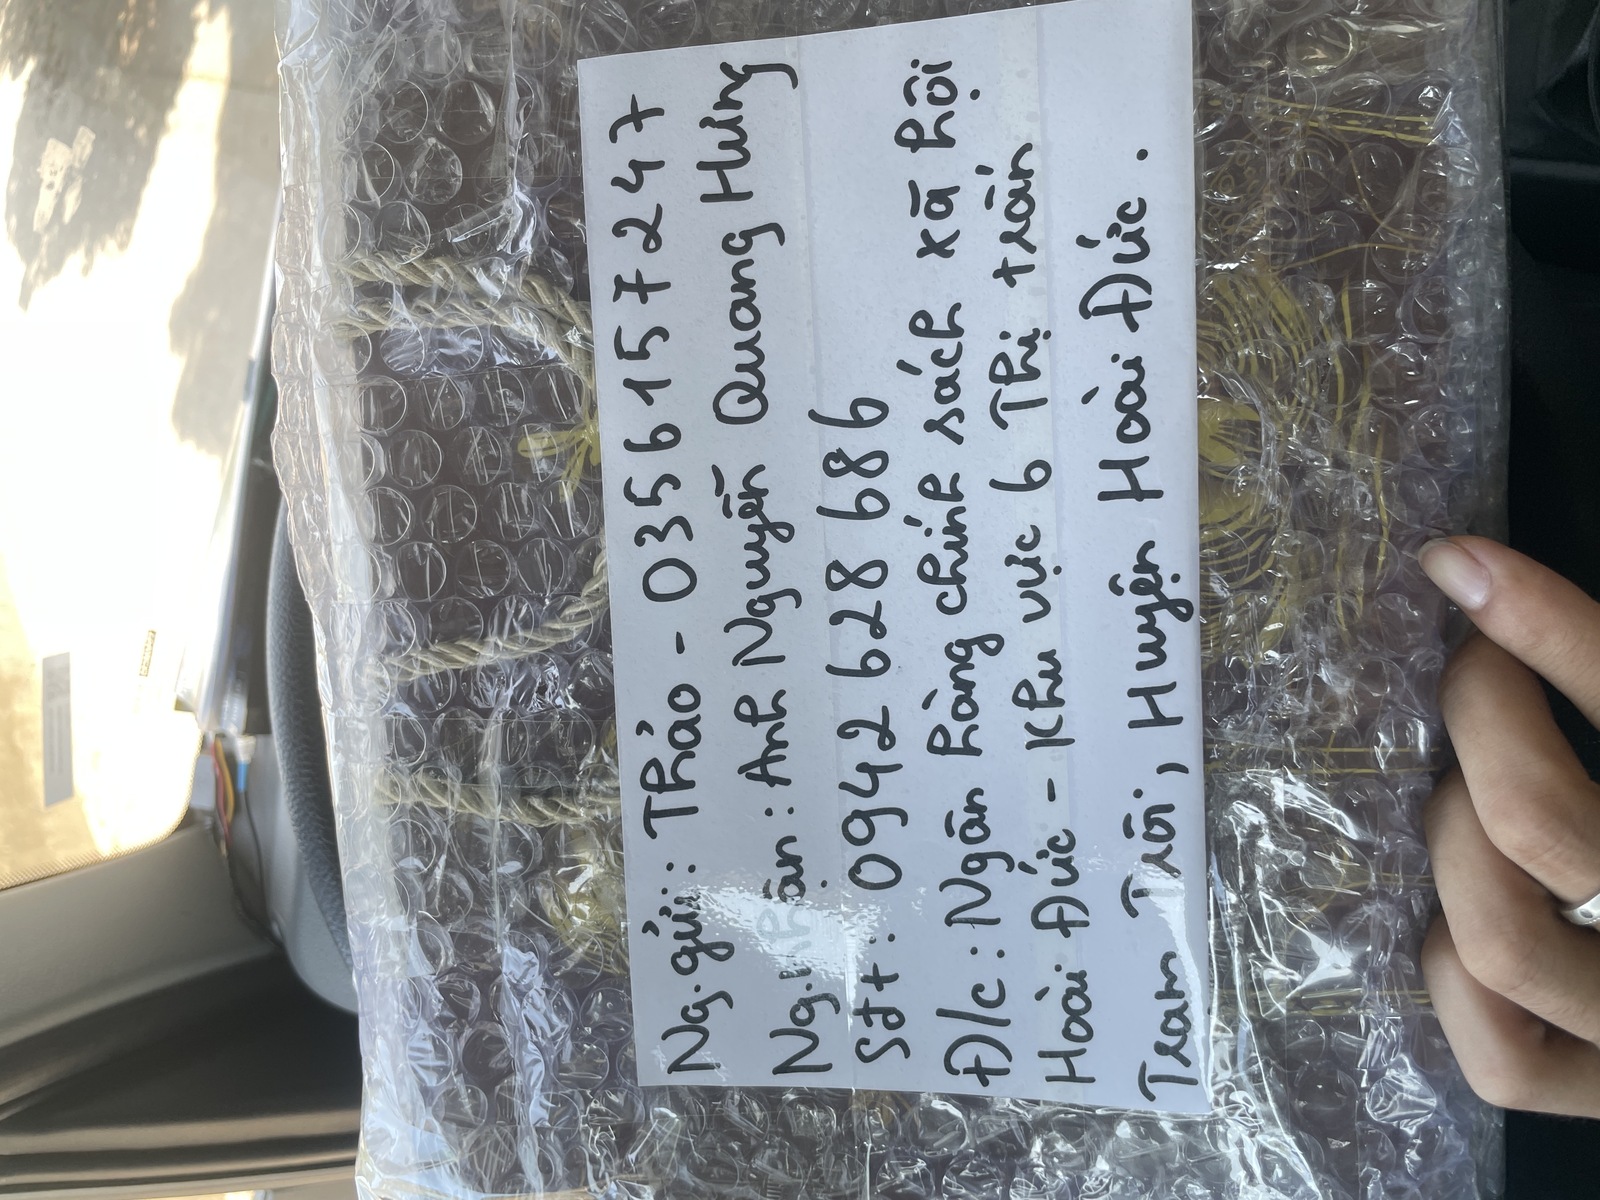 Ng.gửi: Thảo - 0356157247
Ng.nhận: Anh Nguyễn Quang Hưng
Sđt: 0942 628 686
Đ/c: Ngân hàng chính sách xã hội
Hoài Đức - Khu vực 6 Thị trấn
Trạm Trôi, Huyện Hoài Đức.